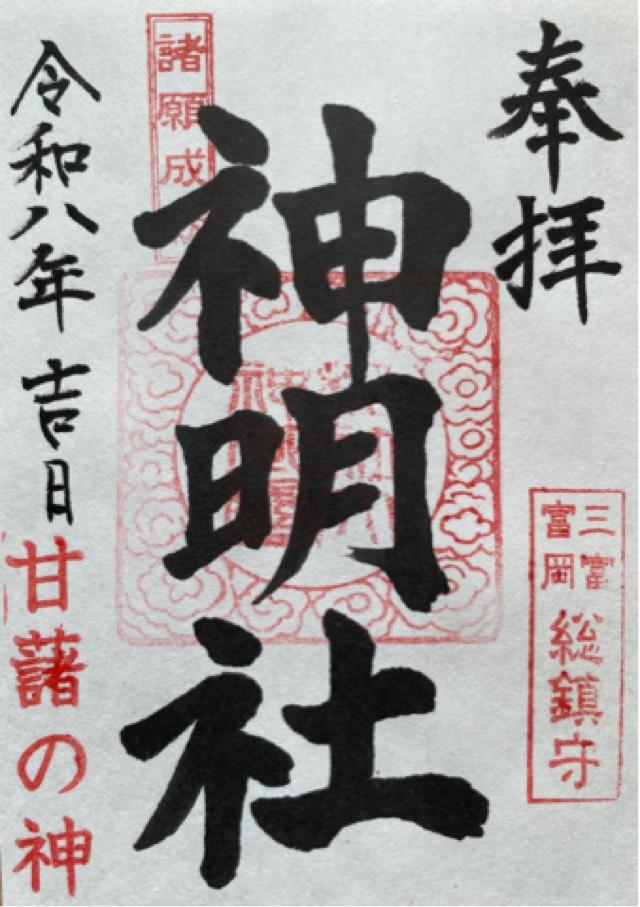 奉拝
三富
富岡
総鎮守
諸願成
神明社
令和八年吉日
甘藷の神